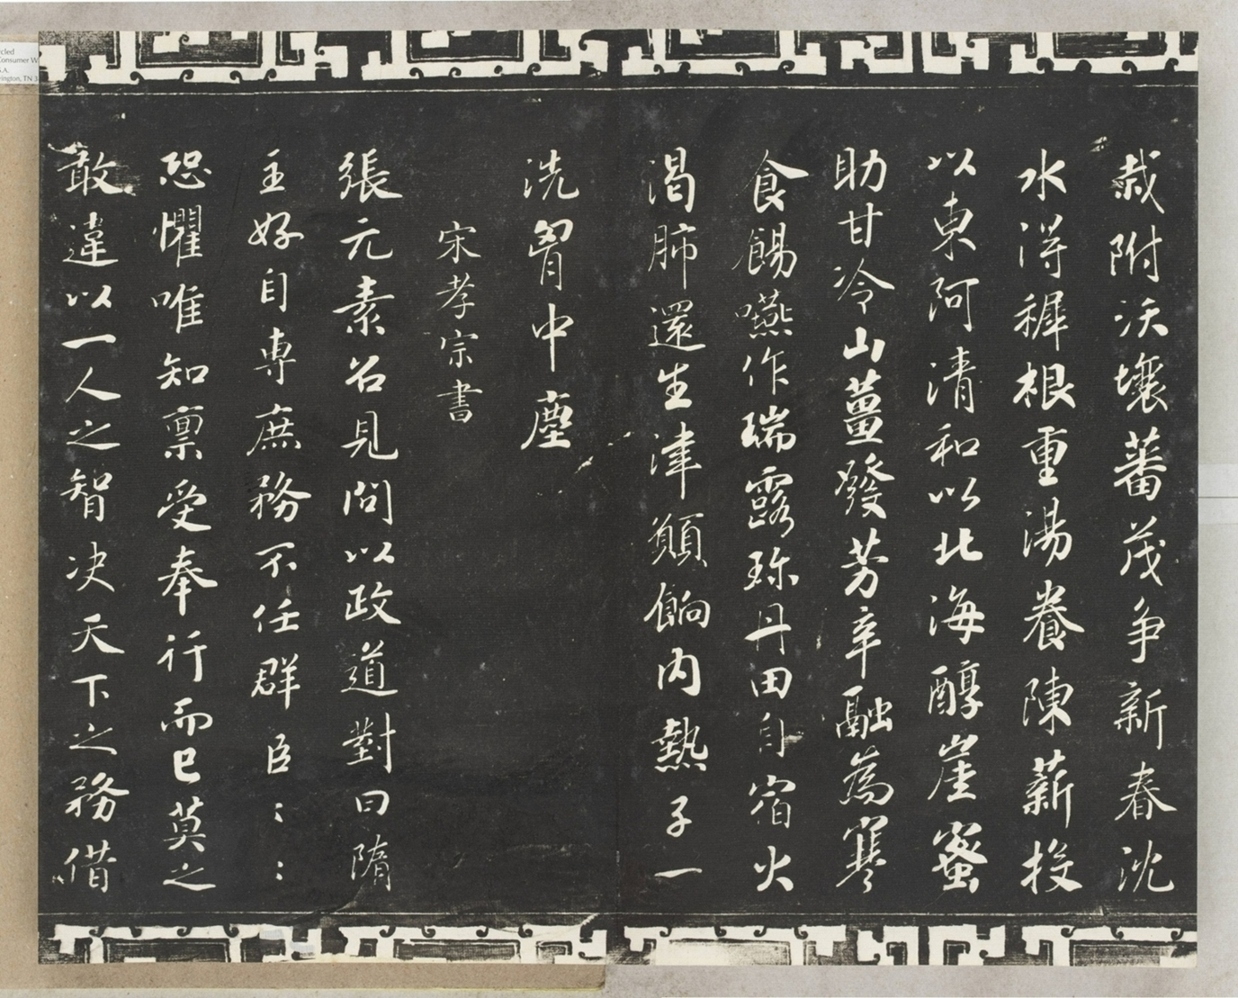 栽附沃壤蕃茂争新春沈
水得穉根重湯養陳薪投
以東阿清和以北海醇崖蜜
助甘冷山薑發芳辛融為寒
食餳嚥作瑞露珍丹田自宿火
渴肺還生津願餉内熱子一
洗胷中塵
宋孝宗書
張元素召見問以政道對曰隋
主好自専庶務不任群臣〻〻
恐懼唯知稟受奉行而已莫之
敢違以一人之智决天下之務借
Consumer W
TN 3